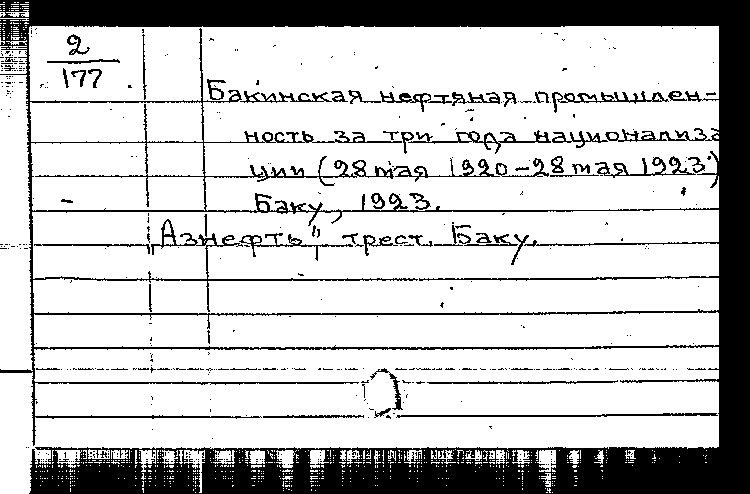 2
177
Бакинская нефтяная промышлен-
ность за три года национализа
ции (28 мая 1920-28 мая 1923)
Баку, 1923.
„Азнефть", трест. Баку.